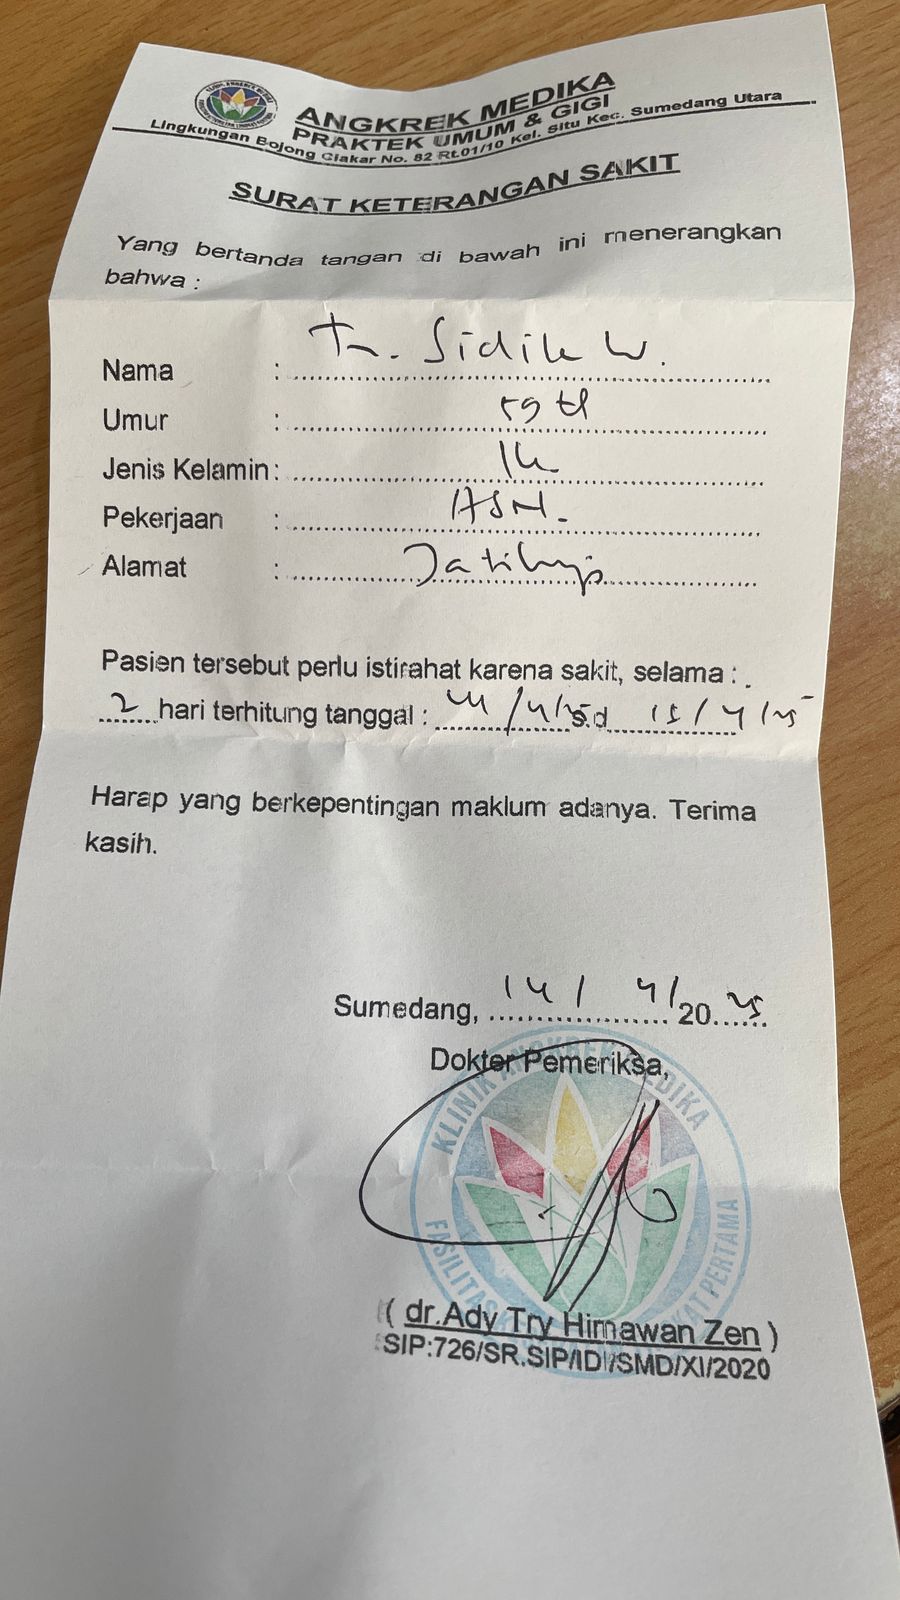 ANGKREK MEDIKA
PRAKTEK UMUM & GIGI
Lingkungan Bojong Ciakar No. 82 Rt.01/10 Kel. Situ Kec. Sumedang Utara
SURAT KETERANGAN SAKIT
Yang bertanda tangan di bawah ini menerangkan
bahwa :
Nama : Tn. Sidik W.
Umur : 59 th
Jenis Kelamin : lk
Pekerjaan : ASN.
Alamat :
Pasien tersebut perlu istirahat karena sakit, selama :
2 hari terhitung tanggal : 14/4/25 s.d 15/4/25
Harap yang berkepentingan maklum adanya. Terima
kasih.
Sumedang, 14/ 4/2025
Dokter Pemeriksa,
KLINIK ANGKREK MEDIKA
( dr.Ady Try Himawan Zen )
SIP:726/SR.SIP/IDI/SMD/XI/2020